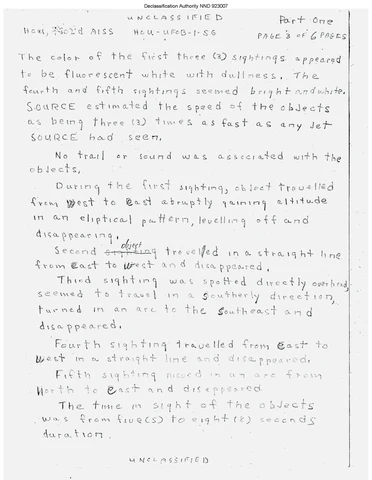 Declassification Authority NND 923007
UNCLASSIFIED
Part One
AISS HCU-UFOB-1-56 PAGE 3 OF 6 PAGES
The color of the first three (3) sightings appeared
to be fluorescent white with dullness. The
fourth and fifth sightings seemed bright and white.
SOURCE estimated the speed of the objects
as being three (3) times as fast as any jet
SOURCE had seen.
No trail or sound was associated with the
objects.
During the first sighting, object travelled
from West to East abruptly gaining altitude
in an eliptical pattern, levelling off and
disappearing.
object
Second sighting travelled in a straight line
from East to West and disappeared.
Third sighting was spotted directly overhead,
seemed to travel in a Southerly direction,
turned in an arc to the Southeast and
disappeared.
Fourth sighting travelled from East to
West in a straight line and disappeared.
Fifth sighting moved in an arc from
North to East and disappeared.
The time in sight of the objects
was from five (5) to eight (8) seconds
duration.
UNCLASSIFIED